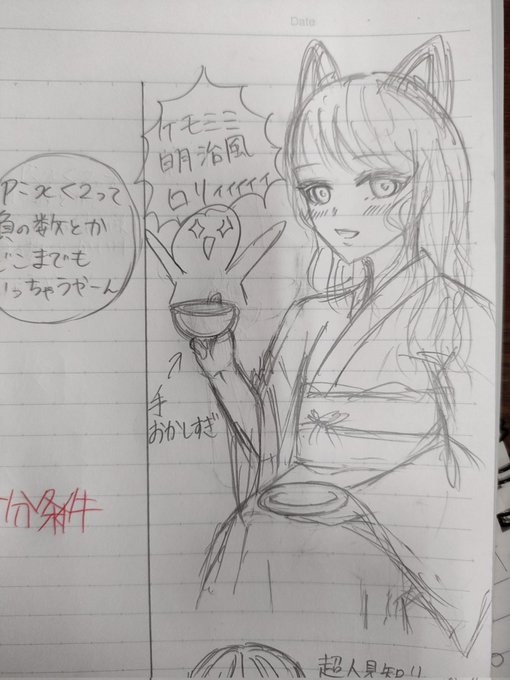 Date
ケモミミ
明治風
ロリィィィィィ
P=x<2って
負の数とか
どこまでも
いっちゃうやーん
手
おかしすぎ
十分条件
超人見知り